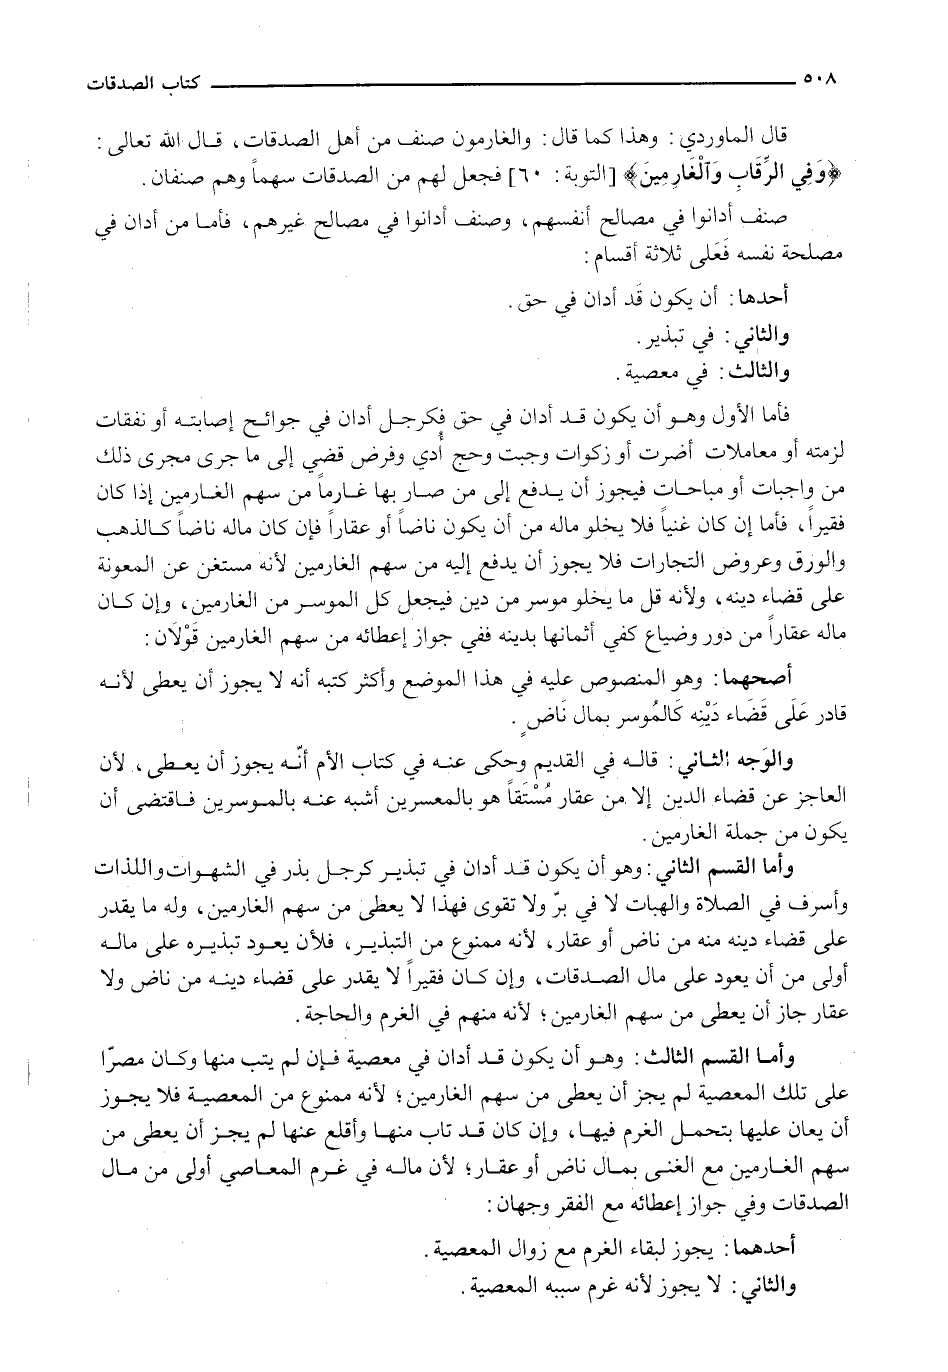 ٥٠٨ كتاب الصدقات
قال الماوردي: وهذا كما قال: والغارمون صنف من أهل الصدقات، قال الله تعالى:
﴿وَفِي الرِّقَابِ وَٱلْغَارِمِينَ﴾ [التوبة: ٦٠] فجعل لهم من الصدقات سهماً وهم صنفان.
صنف أدانوا في مصالح أنفسهم، وصنف أدانوا في مصالح غيرهم، فأما من أدان في
مصلحة نفسه فَعَلى ثلاثة أقسام:
أحدها: أن يكون قَد أدان في حق.
والثاني: في تبذير.
والثالث: في معصية.
فأما الأول وهو أن يكون قد أدان في حق فكرجل أدان في جوائح إصابته أو نفقات
لزمته أو معاملات أضرت أو زكوات وجبت وحج أُدي وفرض قضي إلى ما جرى مجرى ذلك
من واجبات أو مباحات فيجوز أن يدفع إلى من صار بها غارماً من سهم الغارمين إذا كان
فقيراً، فأما إن كان غنياً فلا يخلو ماله من أن يكون ناضاً أو عقاراً فإن كان ماله ناضاً كالذهب
والورق وعروض التجارات فلا يجوز أن يدفع إليه من سهم الغارمين لأنه مستغن عن المعونة
على قضاء دينه، ولأنه قل ما يخلو موسر من دين فيجعل كل الموسر من الغارمين، وإن كان
ماله عقاراً من دور وضياع كفي أثمانها بدينه ففي جواز إعطائه من سهم الغارمين قَوْلَان:
أصحهما: وهو المنصوص عليه في هذا الموضع وأكثر كتبه أنه لا يجوز أن يعطى لأنه
قادر عَلَى قَضَاء دَيْنِه كَالمُوسر بمال نَاضٍ.
والوَجه الثاني: قاله في القديم وحكى عنه في كتاب الأم أنّه يجوز أن يعطى، لأن
العاجز عن قضاء الدين إلا من عقار مُسْتَقاً هو بالمعسرين أشبه عنه بالموسرين فاقتضى أن
يكون من جملة الغارمين.
وأما القسم الثاني: وهو أن يكون قد أدان في تبذير كرجل بذر في الشهوات واللذات
وأسرف في الصلاة والهبات لا في برّ ولا تقوى فهذا لا يعطى من سهم الغارمين، وله ما يقدر
على قضاء دينه منه من ناض أو عقار، لأنه ممنوع من التبذير، فلأن يعود تبذيره على ماله
أولى من أن يعود على مال الصدقات، وإن كان فقيراً لا يقدر على قضاء دينه من ناض ولا
عقار جاز أن يعطى من سهم الغارمين؛ لأنه منهم في الغرم والحاجة.
وأما القسم الثالث: وهو أن يكون قد أدان في معصية فإن لم يتب منها وكان مصرّا
على تلك المعصية لم يجز أن يعطى من سهم الغارمين؛ لأنه ممنوع من المعصية فلا يجوز
أن يعان عليها بتحمل الغرم فيها، وإن كان قد تاب منها وأقلع عنها لم يجز أن يعطى من
سهم الغارمين مع الغنى بمال ناض أو عقار؛ لأن ماله في غرم المعاصي أولى من مال
الصدقات وفي جواز إعطائه مع الفقر وجهان:
أحدهما: يجوز لبقاء الغرم مع زوال المعصية.
والثاني: لا يجوز لأنه غرم سببه المعصية.